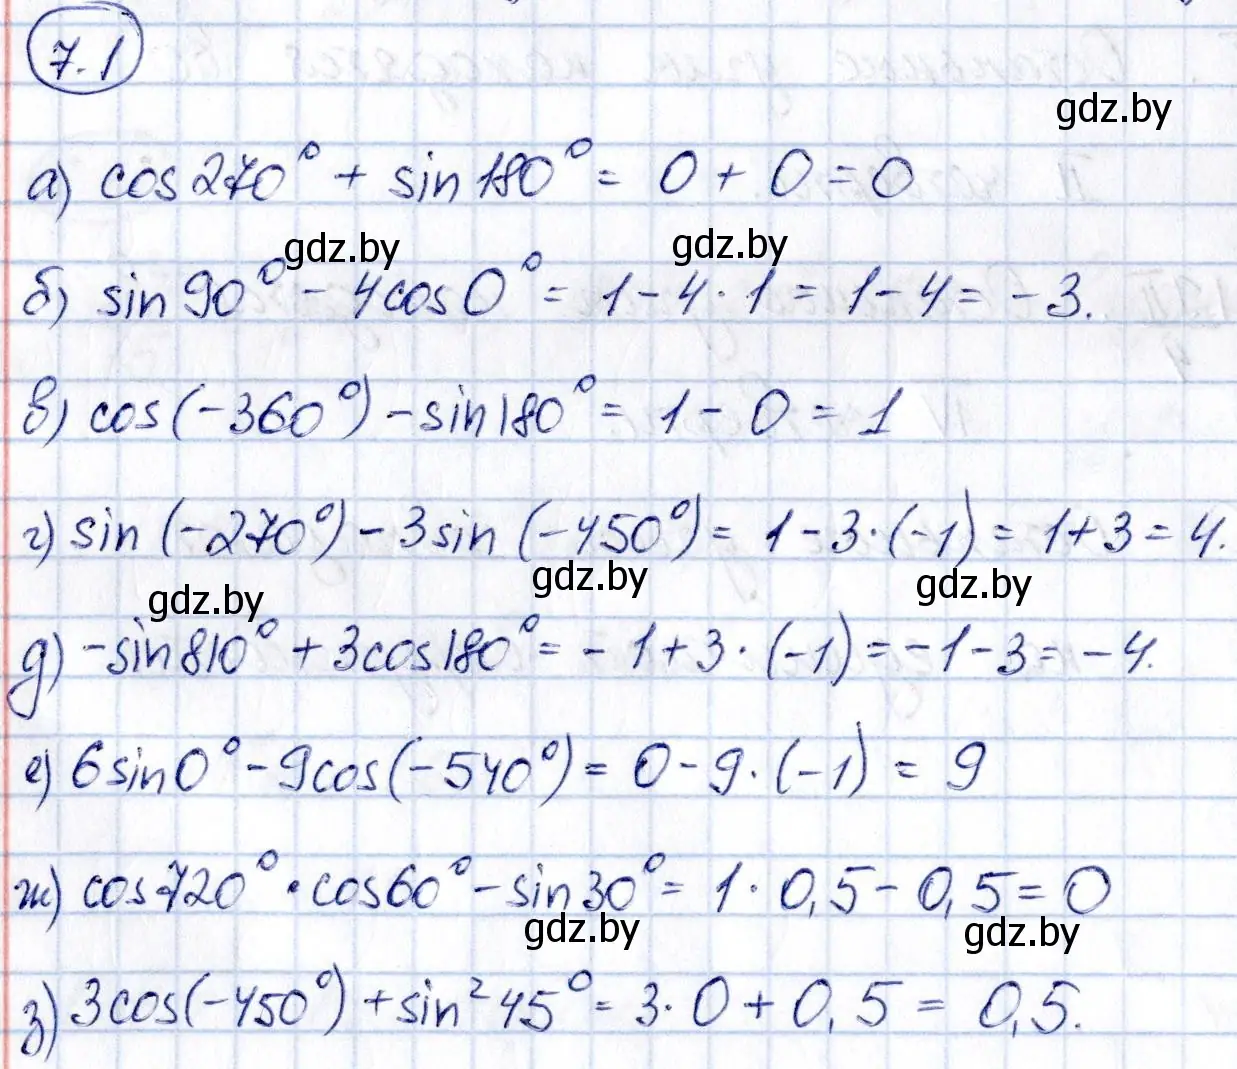 7.1
gdz.by
а) cos 270° + sin 180° = 0 + 0 = 0
gdz.by gdz.by
б) sin 90° - 4cos 0° = 1 - 4 · 1 = 1 - 4 = -3.
в) cos(-360°) - sin 180° = 1 - 0 = 1
г) sin (-270°) - 3 sin (-450°) = 1 - 3·(-1) = 1 + 3 = 4.
gdz.by gdz.by gdz.by
д) -sin 810° + 3cos 180° = -1 + 3 · (-1) = -1 - 3 = -4.
е) 6 sin 0° - 9cos(-540°) = 0 - 9·(-1) = 9
ж) cos 720° · cos 60° - sin 30° = 1 · 0,5 - 0,5 = 0
gdz.by gdz.by
з) 3cos(-450°) + sin² 45° = 3 · 0 + 0,5 = 0,5.